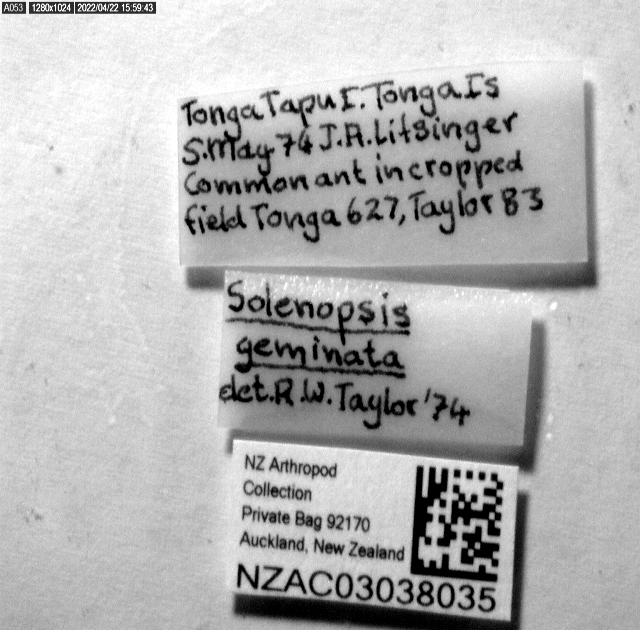 A053 1280x1024 2022/04/22 15:59:43
TongaTapu I. Tonga Is
S.May 74 J.A. Litsinger
Common ant in cropped
field Tonga 627, Taylor 83
Solenopsis
geminata
det. R.W. Taylor '74
NZ Arthropod
Collection
Private Bag 92170
Auckland, New Zealand
NZAC03038035